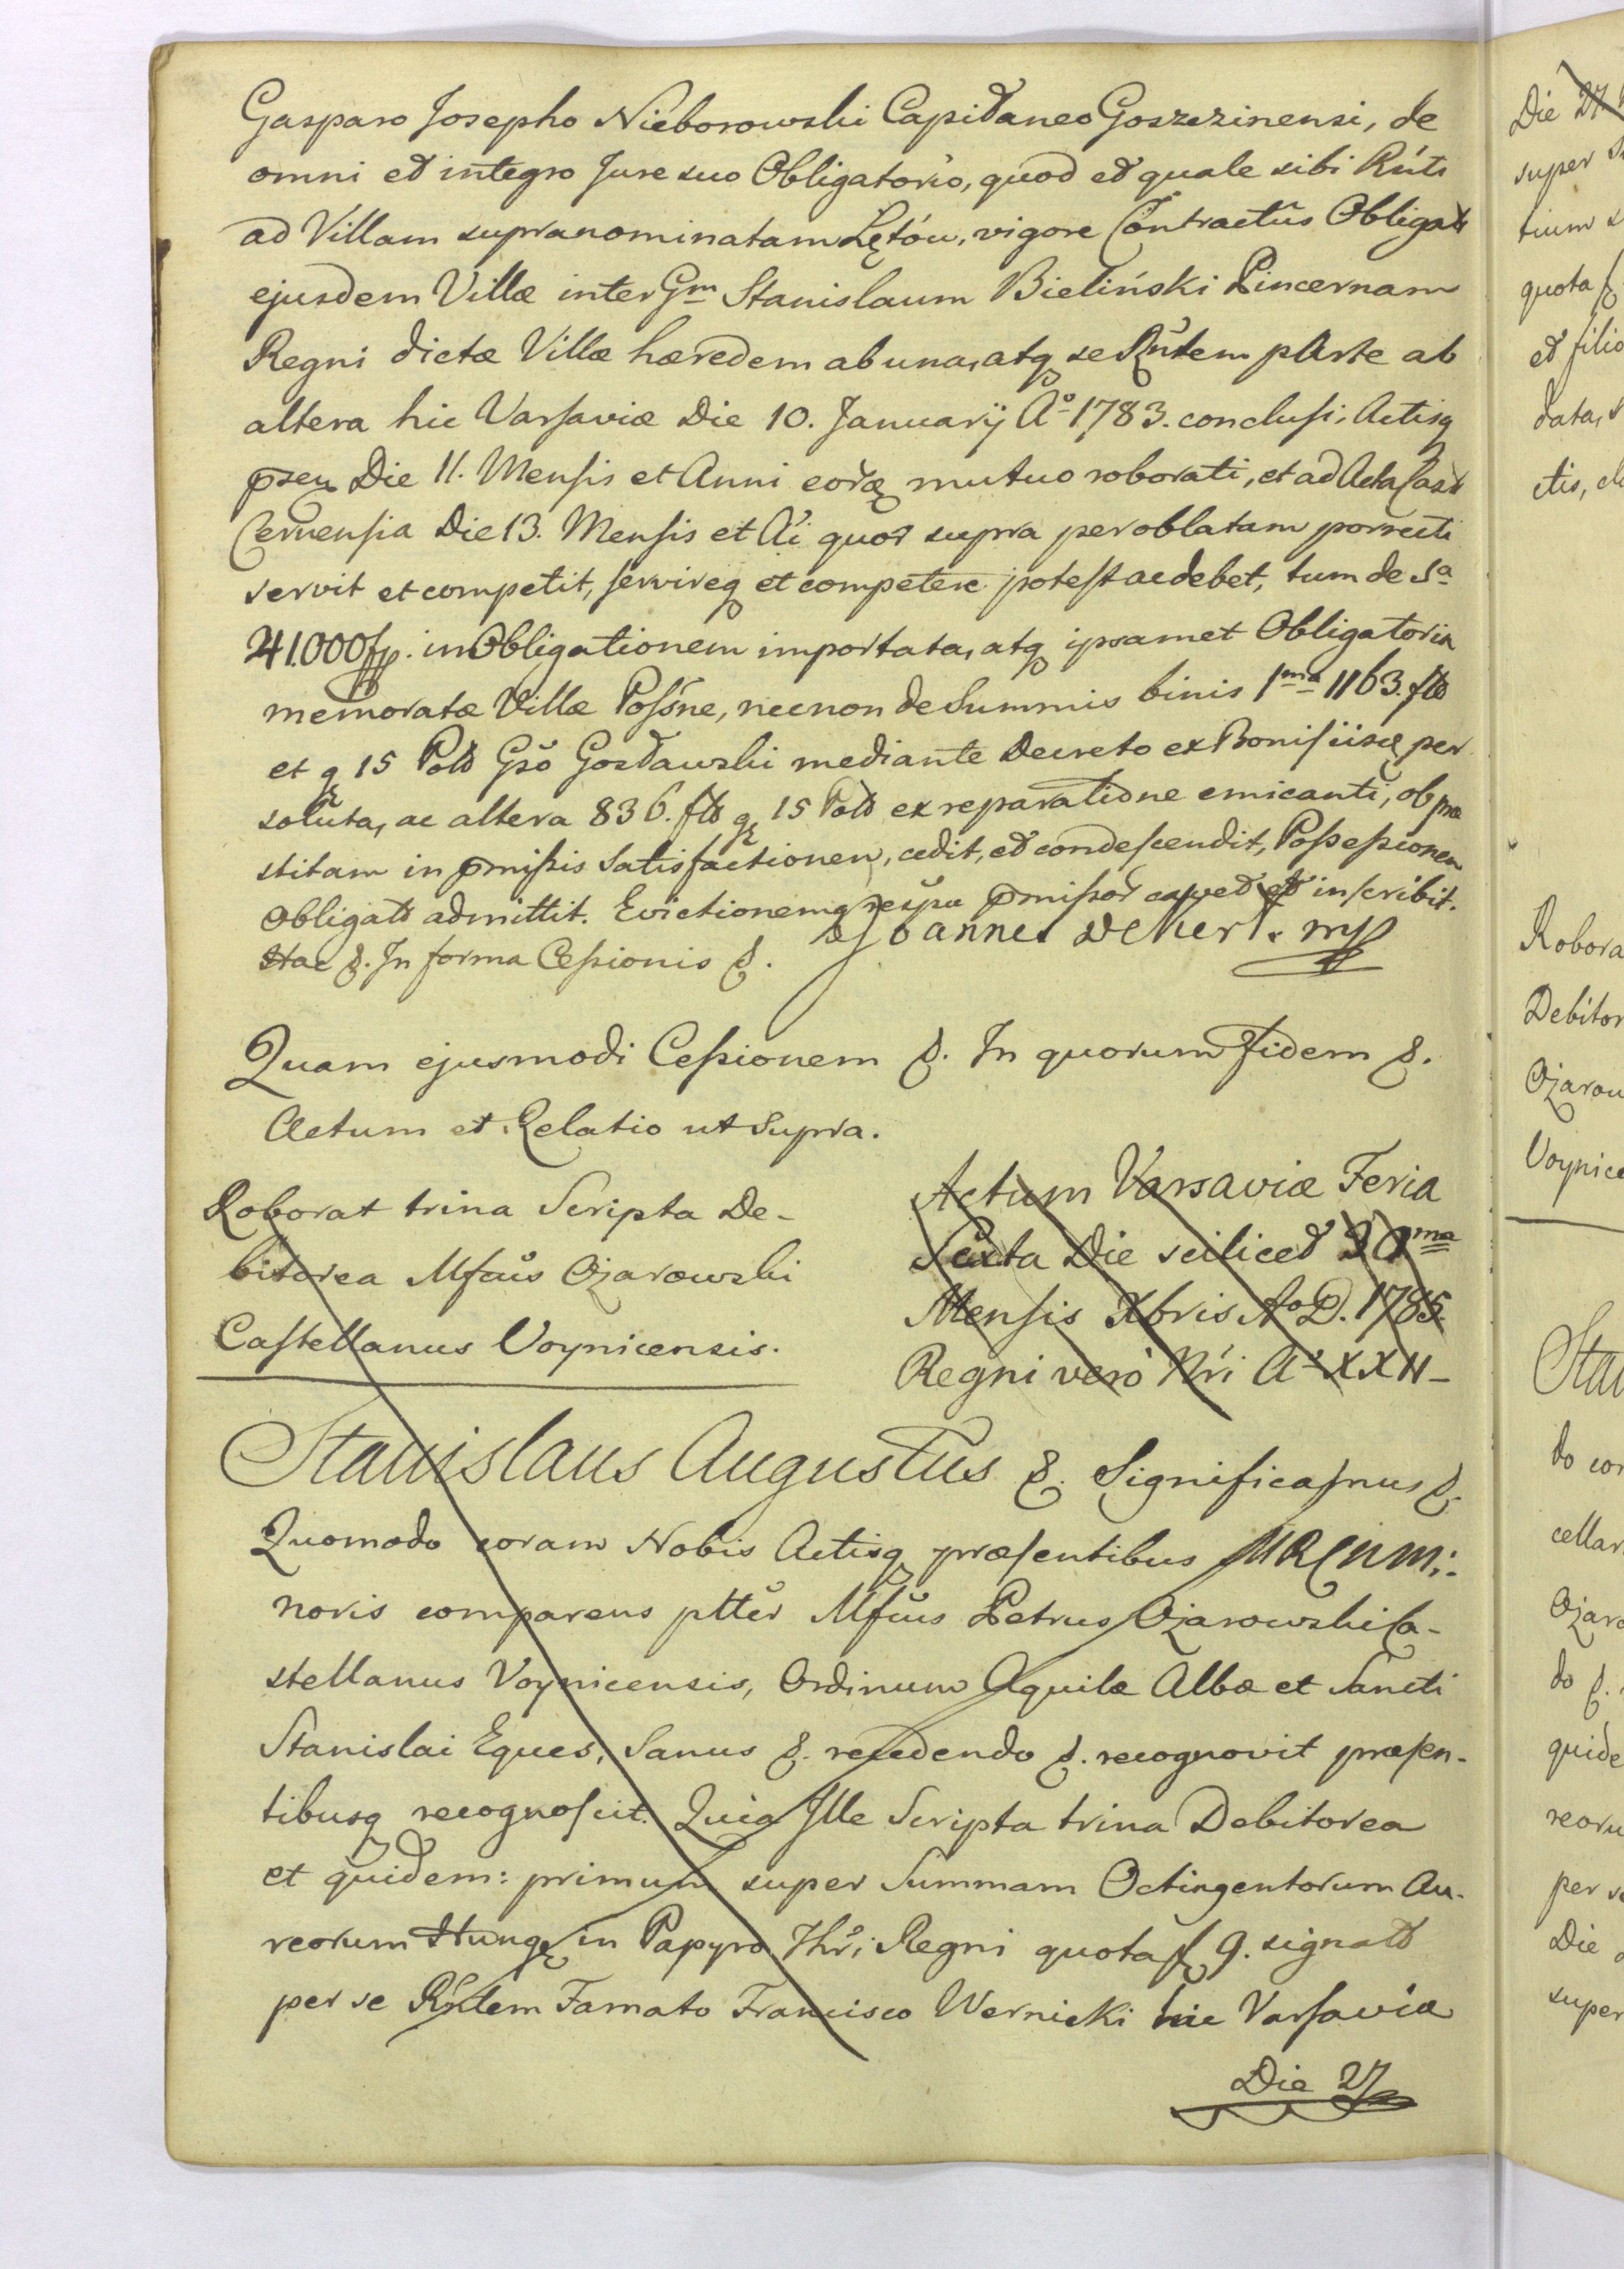 Gasparo Josepho Nieborowski Capitaneo Goszczinensi, de
omni et integro Jure suo Obligatorio, quod et quale sibi Rnti
ad Villam supranominatam Lętów, vigore Contractûs Obligatt
ejusdem Villæ inter Gm Stanislaum Bieliński Pincernam
Regni dictæ Villæ hæredem ab una, atq se Rntem parte ab
altera hic Varsaviæ Die 10. Januarij Ao 1783. conclusi, Actisq
Die 11. Mensis et Anni eorq mutuo roborati, et ad Acta Castr
Cernensia Die 13. Mensis et Ai quor supra per oblatam porrecti
servit et competit, servireq et competere potest ac debet, tum de Sa
41.000 fp. in Obligationem importata, atq ipsamet Obligatoria
memoratæ Villæ Possne, necnon de Summis binis 1ma 1163. fld
et g 15 Pold Gso Gostawski mediante Decreto ex Bonif iisq per
soluta, ac altera 836. fld g 15 Pold ex reparatione emicanti, ob præ
stitam in pmissis Satisfactionem, cedit, et condescendit, Possessionem
Obligatt admittit. Evictionemq respu pmissor cavet et inscribit.
Hac &. In forma Cessionis &. Joannes Dekert. mp
Quam ejusmodi Cessionem &. In quorum Fidem &.
Actum et Relatio ut Supra.
Roborat trina Scripta De-
bitorea Mfcus Ożarowski
Castellanus Voynicensis.
Actum Varsaviæ Feria
Sexta Die scilicet 30ma
Mensis Xbris Ao D. 1785.
Regni vero Nri Ao XXII-
Stanislaus Augustus &. Significamus &.
Quomodo coram Nobis Actisq præsentibus MRCNMi:
noris comparens ptter Mfcus Petrus Ożarowski Ca-
stellanus Voynicensis, Ordinum Aquilæ Albæ et Sancti
Stanislai Eques, Sanus &. recedendo &. recognovit præsen-
tibusq recognoscit. Quia Ille Scripta trina Debitorea
et quidem: primum super Summam Octingentorum Au-
reorum Hung in Papyro Thri Regni quota f 9. signatt
per se Rntem Famato Francisco Wernicki hic Varsaviæ
Die 27